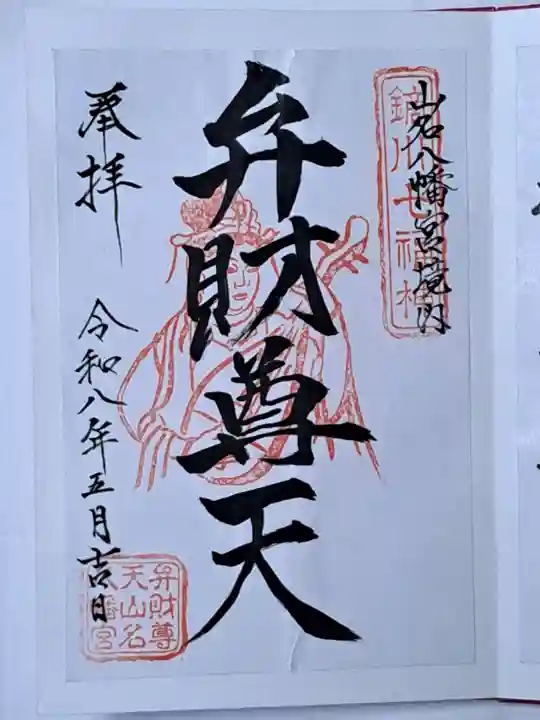 鏑川七福神
山名八幡宮境内
弁財尊天
奉拝
令和八年五月吉日
弁財尊
天山名
八幡宮